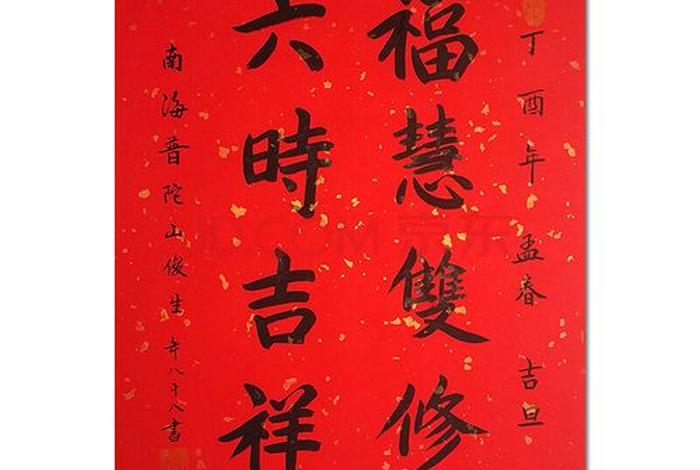 丁酉年 孟春 吉旦
福慧雙修
六時吉祥
南海普陀山俊生 年八十八書
JD.COM 京东